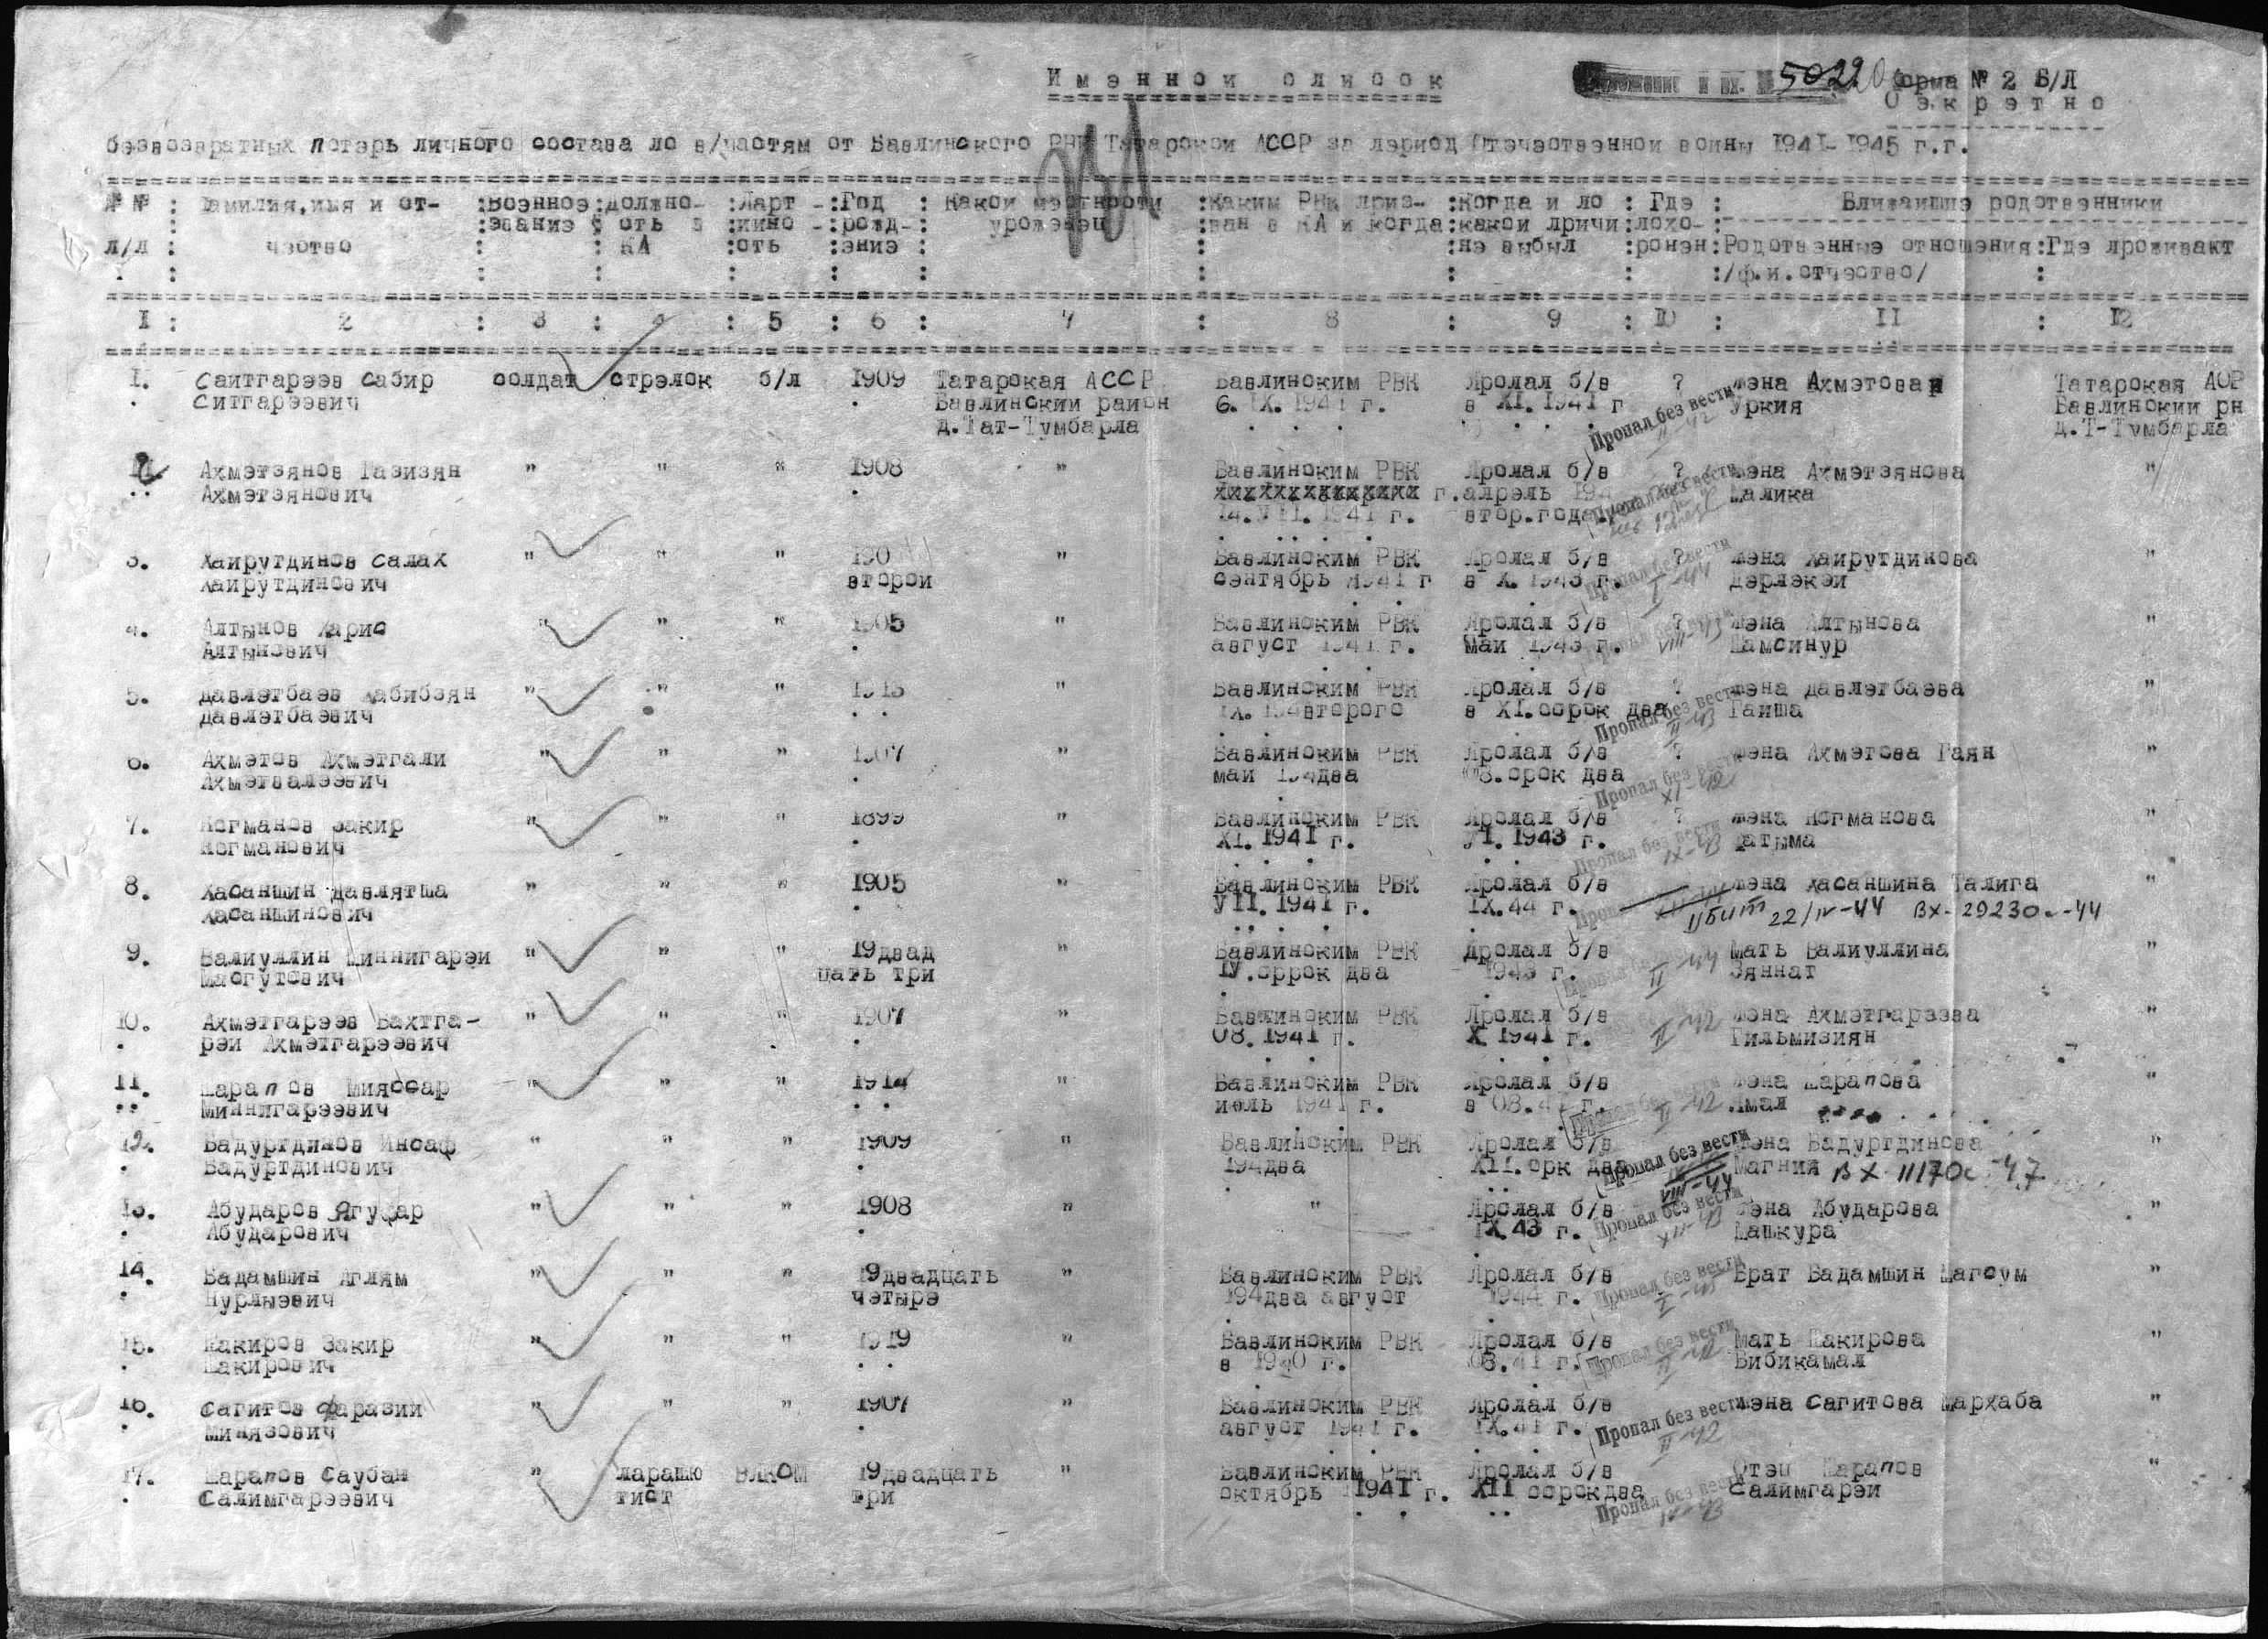 Именной список
50220 форма № 2 Б/Л
Секретно
безвозвратных потерь личного состава по в/частям от Бавлинского РВК Татарской АССР за период Отечественной войны 1941-1945 г.г.
№№ : Фамилия, имя и от- :Военное:должно- :Парт - :Год : Какой местности :Каким РВК приз- :Когда и по : Где : Ближайшие родственники
:звание : сть в :ийно - :рожд- : уроженец :ван в КА и когда:какой причи:похо- :
п/п : чество : : КА :сть :ение : : :не выбыл :ронен:Родственные отношения:Где проживакт
:/ф.и.отчество/ :
I : 2 : 3 : 4 : 5 : 6 : 7 : 8 : 9 : 10 : II : 12
I. Саитгареев Сабир солдат стрелок б/п 1909 Татарская АССР Бавлинским РВК Пропал б/в ? жена Ахметова Татарская АСР
Ситгареевич Бавлинский район 6.IX.1941 г. в XI.1941 г Пропал без вести Уркия Бавлинский рн
д.Тат-Тумбарла II-42 д.Т-Тумбарла
Ахметзянов Газизян " " " 1908 " Бавлинским РВК Пропал б/в ? жена Ахметзянова "
Ахметзянович хххххххххххххх г. апрель 194 Пропал без вести Малика
14.VII.1941 г. втор.года
3. Хайрутдинов Салах " " " 190 " Бавлинским РВК Пропал б/в ? жена Хайрутдинова "
Хайрутдинович второй сентябрь 1941 г в X.1943 г. Пропал без вести I-44 Дерлекэй
4. Алтынов Харис " " " 1905 " Бавлинским РВК Пропал б/в ? жена Алтынова "
Алтынович август 1941 г. май 1943 г. VIII-43 Шамсинур
5. Давлетбаев Хабибзян " " " 1913 " Бавлинским РВК Пропал б/в ? жена Давлетбаева "
Давлетбаевич IX.194второго в XI.сорок два Пропал без вести II-43 Гайша
6. Ахметов Ахметгали " " " 1907 " Бавлинским РВК Пропал б/в ? жена Ахметова Гаян "
Ахметвалеевич май 194два 08.орок два Пропал без вести XI-42
7. Ногманов Закир " " " 1899 " Бавлинским РВК Пропал б/в ? жена Ногманова
Ногманович XI.1941 г. УI.1943 г. Пропал без вести IX-43 Фатыма "
8. Хасаншин Давлятша " " " 1905 " Бавлинским РВК Пропал б/в жена Хасаншина Талига "
Хасаншинович УII.1941 г. IX.44 г. Убит 22/IV-44 Вх-29230с-44
9. Валиуллин Миннигарэй " " " 19двад " Бавлинским РВК Пропал б/в Мать Валиуллина "
Масгутович цать три IУ.сррок два 1943 г. II-44 Зяннат
10. Ахметгареев Бахтга- " " " 1907 " Бавлинским РВК Пропал б/в жена Ахметгареева "
рэй Ахметгареевич 08.1941 г. X 1941 г. II-42 Гильмизиян
11. Шарапов Мияссар " " " 1914 " Бавлинским РВК Пропал б/в жена Шарапова "
Миннигареевич июль 1941 г. в 08.41 г. Пропал II-42 Ямал
12. Бадуртдинов Инсаф " " " 1909 " Бавлинским РВК Пропал б/в жена Бадуртдинова "
Бадуртдинович 194два XII.орк два Пропал без вести VIII-44 Магния Вх 11170с-47
13. Абударов Ягуфар " " " 1908 " " Пропал б/в жена Абударова "
Абударович IX.43 г. Пропал без вести XII-43 Машкура
14. Бадамшин Аглям " " " 19двадцать " Бавлинским РВК Пропал б/в Брат Бадамшин Магсум "
Нурлыевич четыре 194два август 1944 г. Пропал без вести
15. Шакиров Закир " " " 1919 " Бавлинским РВК Пропал б/в Мать Шакирова "
Шакирович в 1940 г. 08.41 г. Пропал без вести II-42 Бибикамал
16. Сагитов Фаразий " " " 1907 " Бавлинским РВК Пропал б/в жена Сагитова Мархаба "
Минязович август 1941 г. IX.41 г. Пропал без вести II-42
17. Шарапов Саубан " парашю ВЛКСМ 19двадцать " Бавлинским РВК Пропал б/в Отец Шарапов "
Салимгареевич тист три октябрь 1941 г. XII сорокдва Пропал без вести IV-43 Салимгарэй